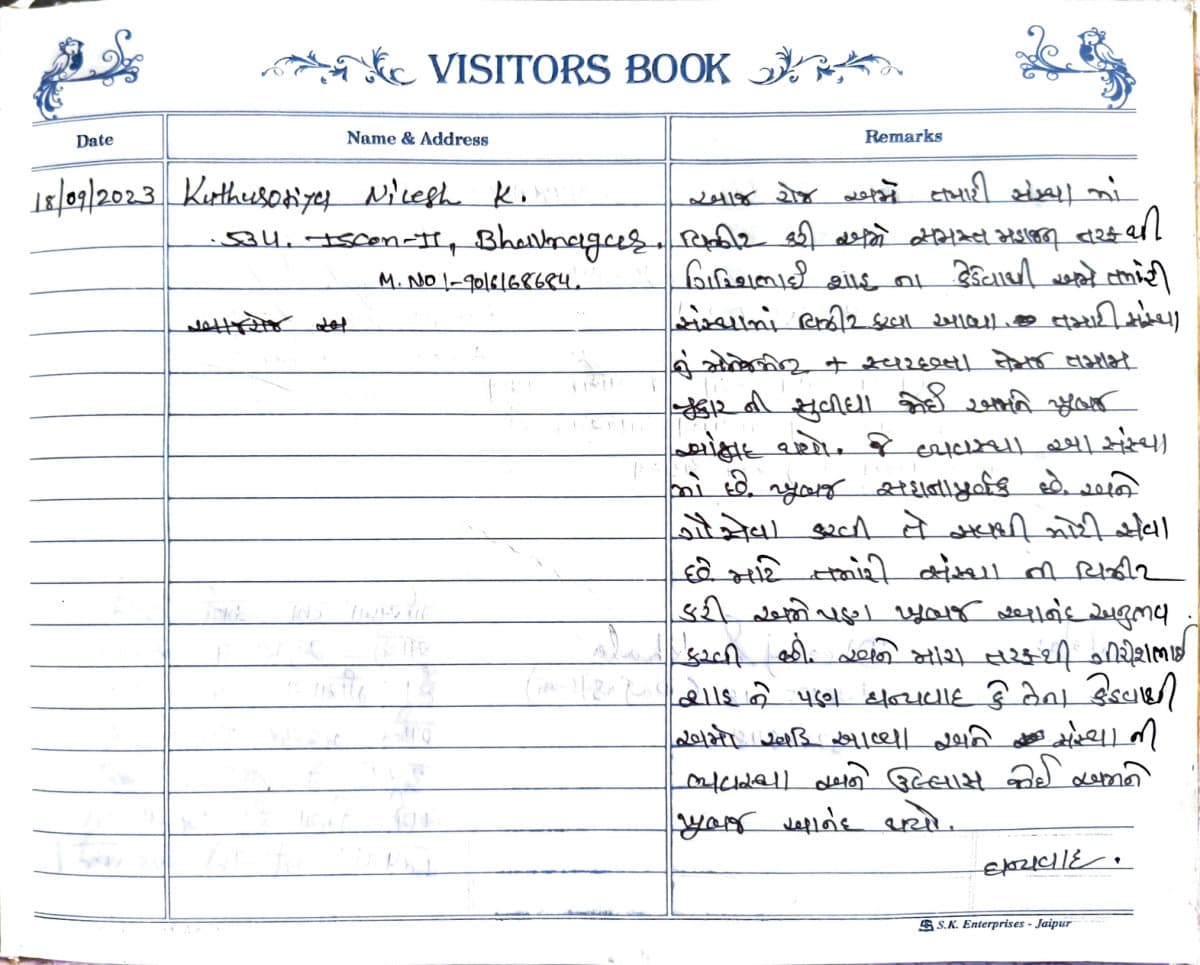 VISITORS BOOK
Date
Name & Address
Remarks
18/09/2023
Kuthusotiya Nilesh K.
534. Iscon-II, Bhavnagar.
M. NO :- 9016168684.
આજરોજ અ
આજ રોજ અમે તમારી સંસ્થા માં
વિઝીટ કરી અમો સમસ્ત મહાજન તરફથી
ગિરિશભાઈ શાહ ના કેહવાથી અમે તમારી
સંસ્થામાં વિઝીટ કરવા આવ્યા. તમારી સંસ્થા
નું મેનેજમેન્ટ + સ્વચ્છતા તેમજ તમામ
પ્રકાર ની સુવીધા જોઈ અમને ખુબજ
આંનદ થયો. જે વ્યવસ્થા આ સંસ્થા
માં છે. ખુબજ સરાહનાપુર્વક છે. અને
ગૌસેવા કરવી તે સવથી મોટી સેવા
છે માટે તમારી સંસ્થા ની વિઝીટ
કરી અમો પણ ખુબજ આનંદ અનુભવ
કરવી છી. અને મારા તરફથી ગીરીશભાઈ
શાહ ને પણ ધન્યવાદ કે તેના કેહવાથી
અમો અહિ આવ્યા અને સંસ્થા ની
વ્યવસ્થા અને ઉલ્લાસ જોઈ અમને
ખુબજ આનંદ થયો.
ધન્યવાદ.
S.K. Enterprises - Jaipur